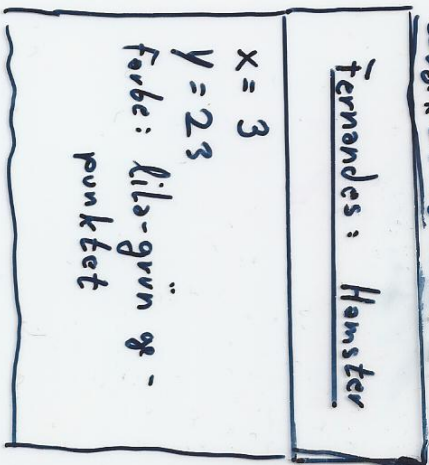 Fernandes: Hamster
x = 3
y = 23
Farbe: lila-grün ge-
punktet